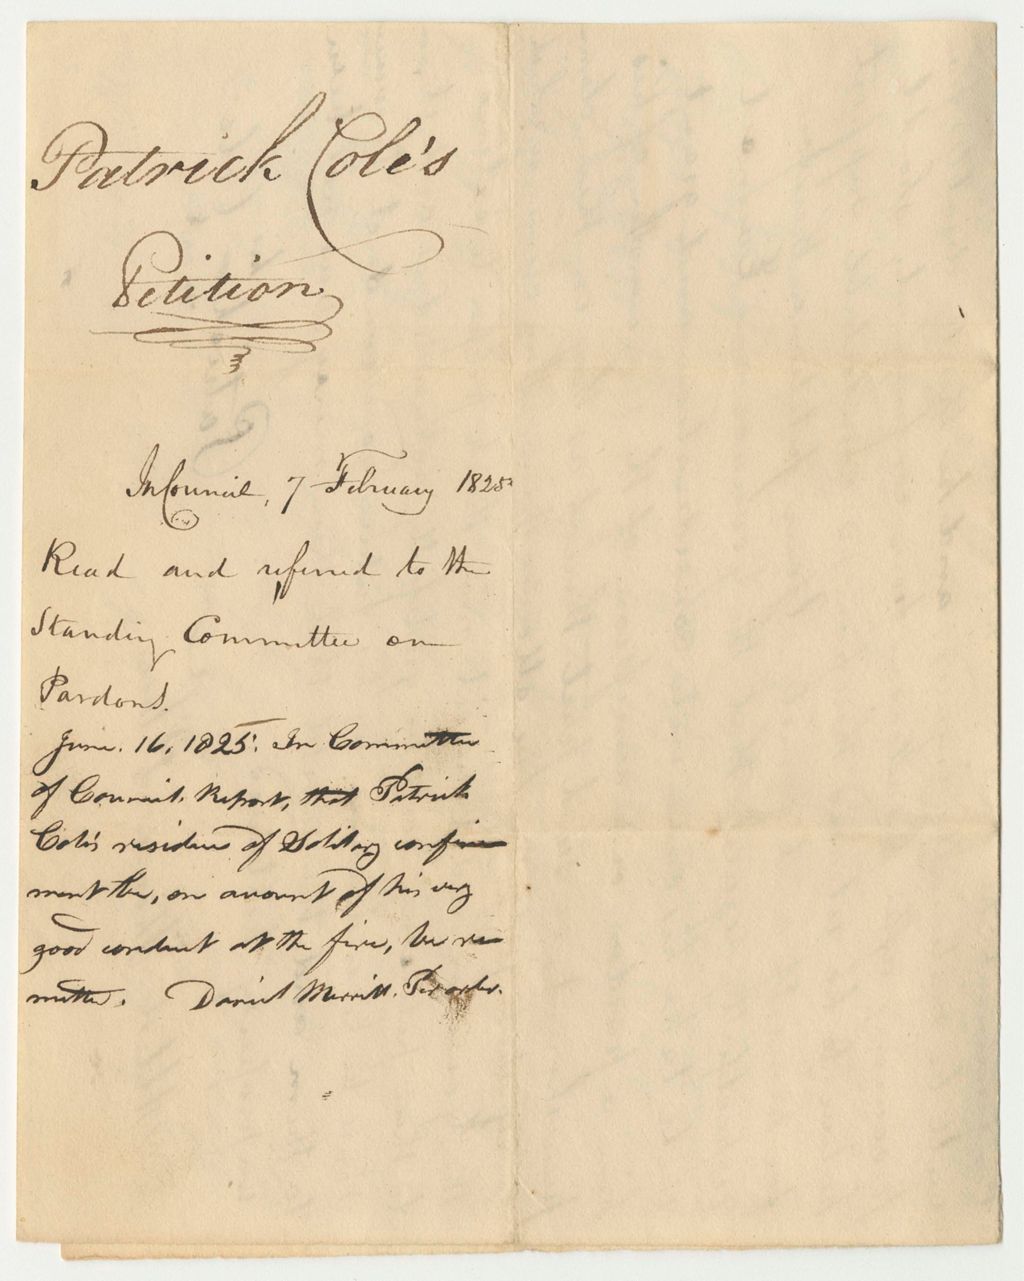 Patrick Cole's
Petition
In Council, 7 February 1825
Read and referred to the
Standing Committee on
Pardons.
June. 16. 1825. In Committee
of Council. Report, that Patrick
Cole's residue of Solitary confine
ment be, on account of his very
good conduct at the fire, be re
mitted. Daniel Merrill. Per order.